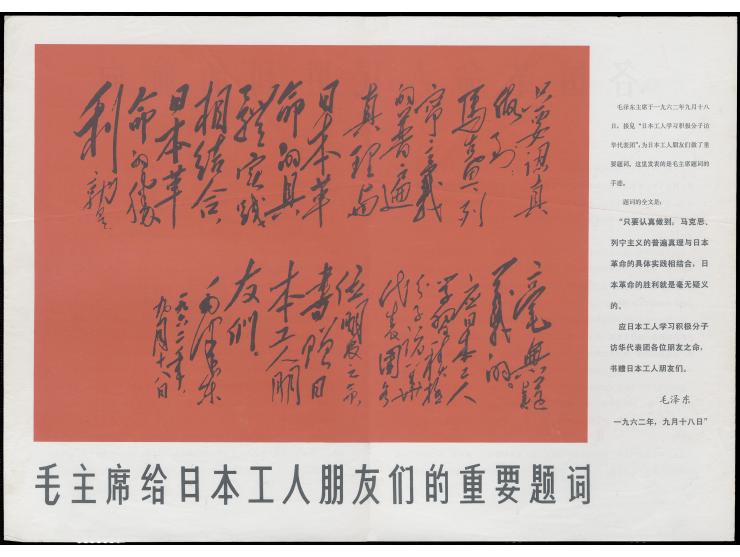 只要认真
做到:
馬克思、列
宁主义
的普遍
真理与
日本革
命的具
體实践
相结合,
日本革
命的勝
利就是
毫無疑
義的。
应日本工人
学習积极
分子访华
代表团各
位朋友之命,
書贈日
本工人朋
友们。
毛泽东
一九六二年,
九月十八日
毛泽东主席于一九六二年九月十八
日,接见“日本工人学习积极分子访
华代表团”,为日本工人朋友们做了重
要题词。这里发表的是毛主席题词的
手迹。
题词的全文是:
“只要认真做到,马克思、
列宁主义的普遍真理与日本
革命的具体实践相结合,日
本革命的胜利就是毫无疑义
的。
应日本工人学习积极分子
访华代表团各位朋友之命,
书赠日本工人朋友们。
毛泽东
一九六二年,九月十八日”
毛主席给日本工人朋友们的重要题词